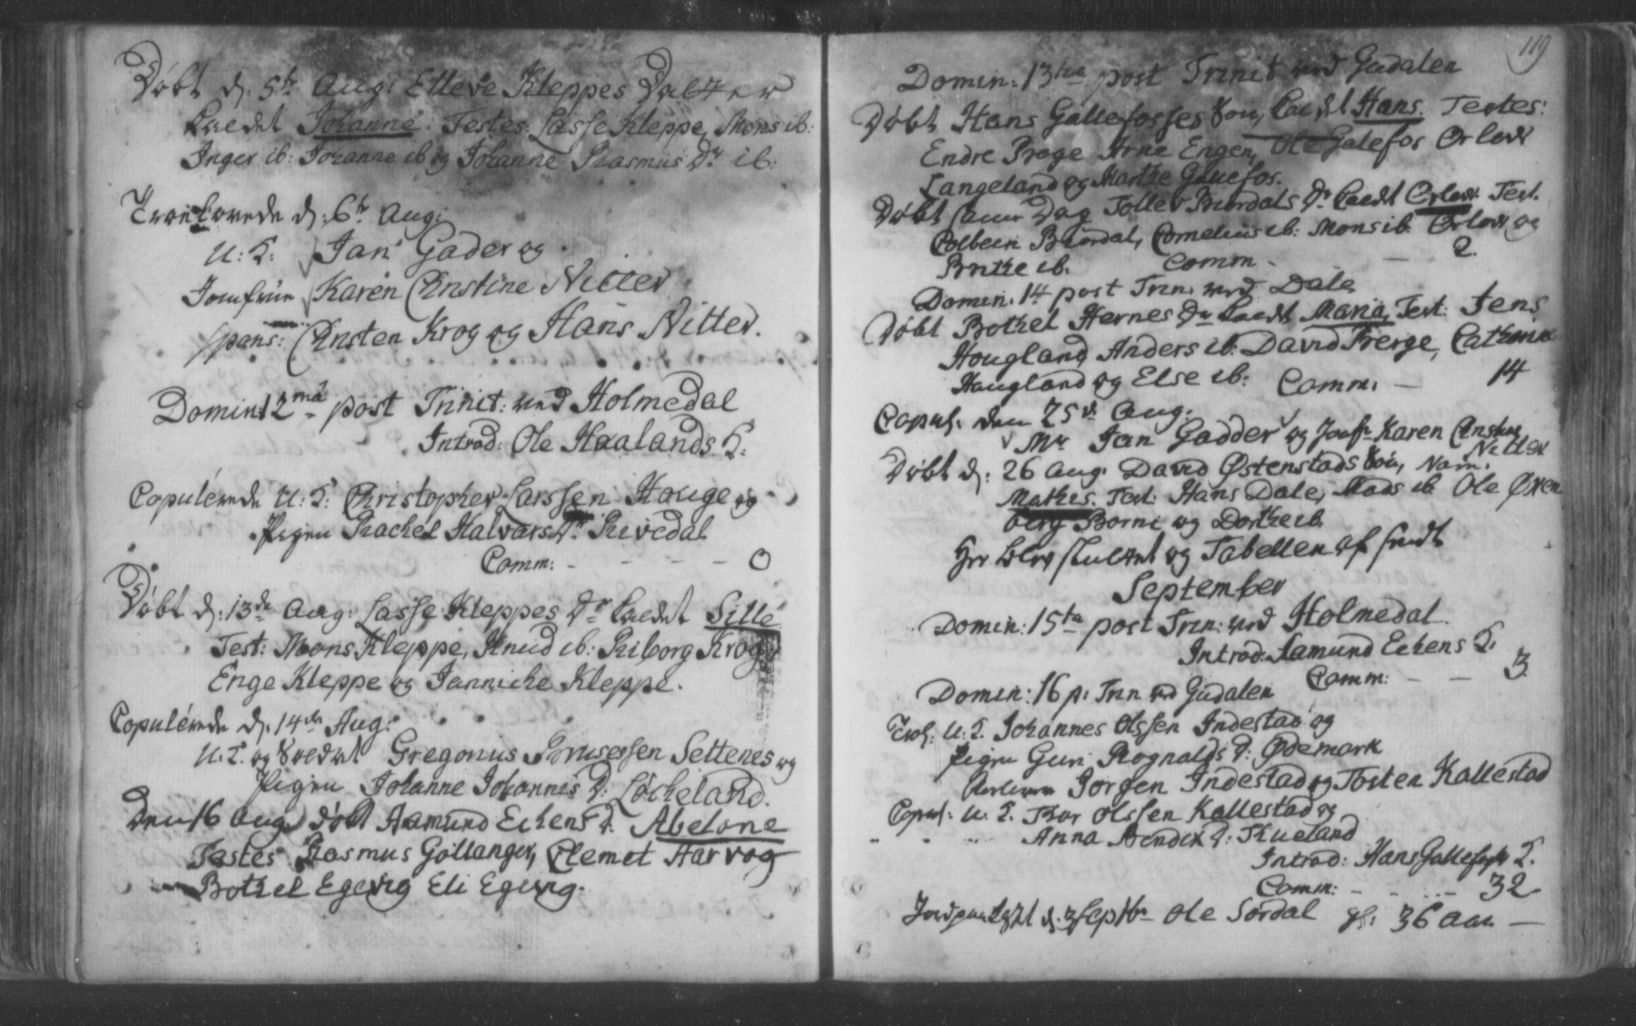 Døbt d. 5te Aug: Elleve Kleppes Datter
kaldet Johanne. Testes Lasse Kleppe, Mons ib:
Inger ib: Johanne ib og Johanne Rasmus Dr ib.
Trolovede d. 6te Aug:
U: K: Jan Gader og
Jomfrue Karen Christine Nitter
spons: Christen Krog og Hans Nitter.
Domin: 12ma post Trinit: ved Holmedal
Introd: Ole Haalands K.
Copulerede U: K: Christopher Larssen Hauge og
Pigen Rachel Halvars Dr Rivedal
Comm: - - - - 0
Døbt d. 13de Aug: Lasse Kleppes Dr kaldet Sille
Test: Mons Kleppe, Knud ib: Riborg Krog
Enge Kleppe og Jannicke Kleppe.
Copulerede d. 14de Aug:
U. K. og Gregorius Settenes og
Pigen Johanne Johannis D: Løckeland.
Den 16 Aug døbt Aamund Eckens D. Abelone
Testes Rasmus Gollanger, Clemet Harvog
Bothel Egevig Eli Egevig.
119
Domin: 13tia post Trinit ved Gudalen
Døbt Hans Gallefosses Søn, kaldet Hans. Testes:
Endre Arne Engen, Ole Galefos Orlow
Langeland og Marthe Galefos.
Døbt samme Dag Tollev Buordals Dr kaldet Test.
Colbeen Buordal, Cornelius ib: Mons ib. og
Brithe ib. Comm - - 2.
Domin. 14 post Trin. ved Dale
Døbt Bothel Hernes Dr kaldet Maria, Test: Jens
Hougland Anders ib. David Frerge, Cathrina
Haugland og Else ib: Comm. - 14
Copul. den 25de Aug.
Mr Jan Gadder og Jomfr Karen Christine
Nitter
Døbt d: 26 Aug: David Østenstads Søn, Nom.
Mathis Test: Hans Dale, Mads ib Ole Øxen
berg Borni og Dorthe ib
Her blev sluttet og Tabellen af sendt
September
Domin: 15ta post Trin: ved Holmedal.
Introd. Aamund Eckens K.
Comm: - - 3.
Domin: 16 p. Trin ved Gudalen
Trol: U. K. Johannes Olssen Indestad og
Pigen Guri Rognalds D: Ødemark
Jorgen Indestad og Tosten Kallestad
Copul: U. K. Thor Olssen Kallestad og
Anna Bendix D: Thueland
Introd: Hans Gallefos K.
Comm: - - - 32
Jordpaakast d. Septbr Ole Sørdal gl: 36 Aar -